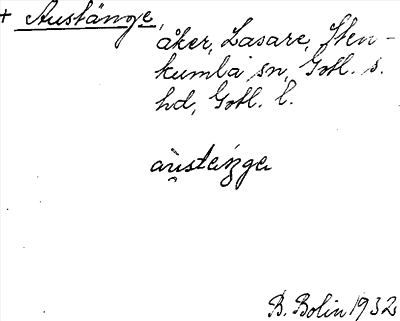 + Austänge,
åker, Lasare, Sten-
kumla sn, Gotl. s.
hd, Gotl. l.
austeŋge
B. Bolin 1932